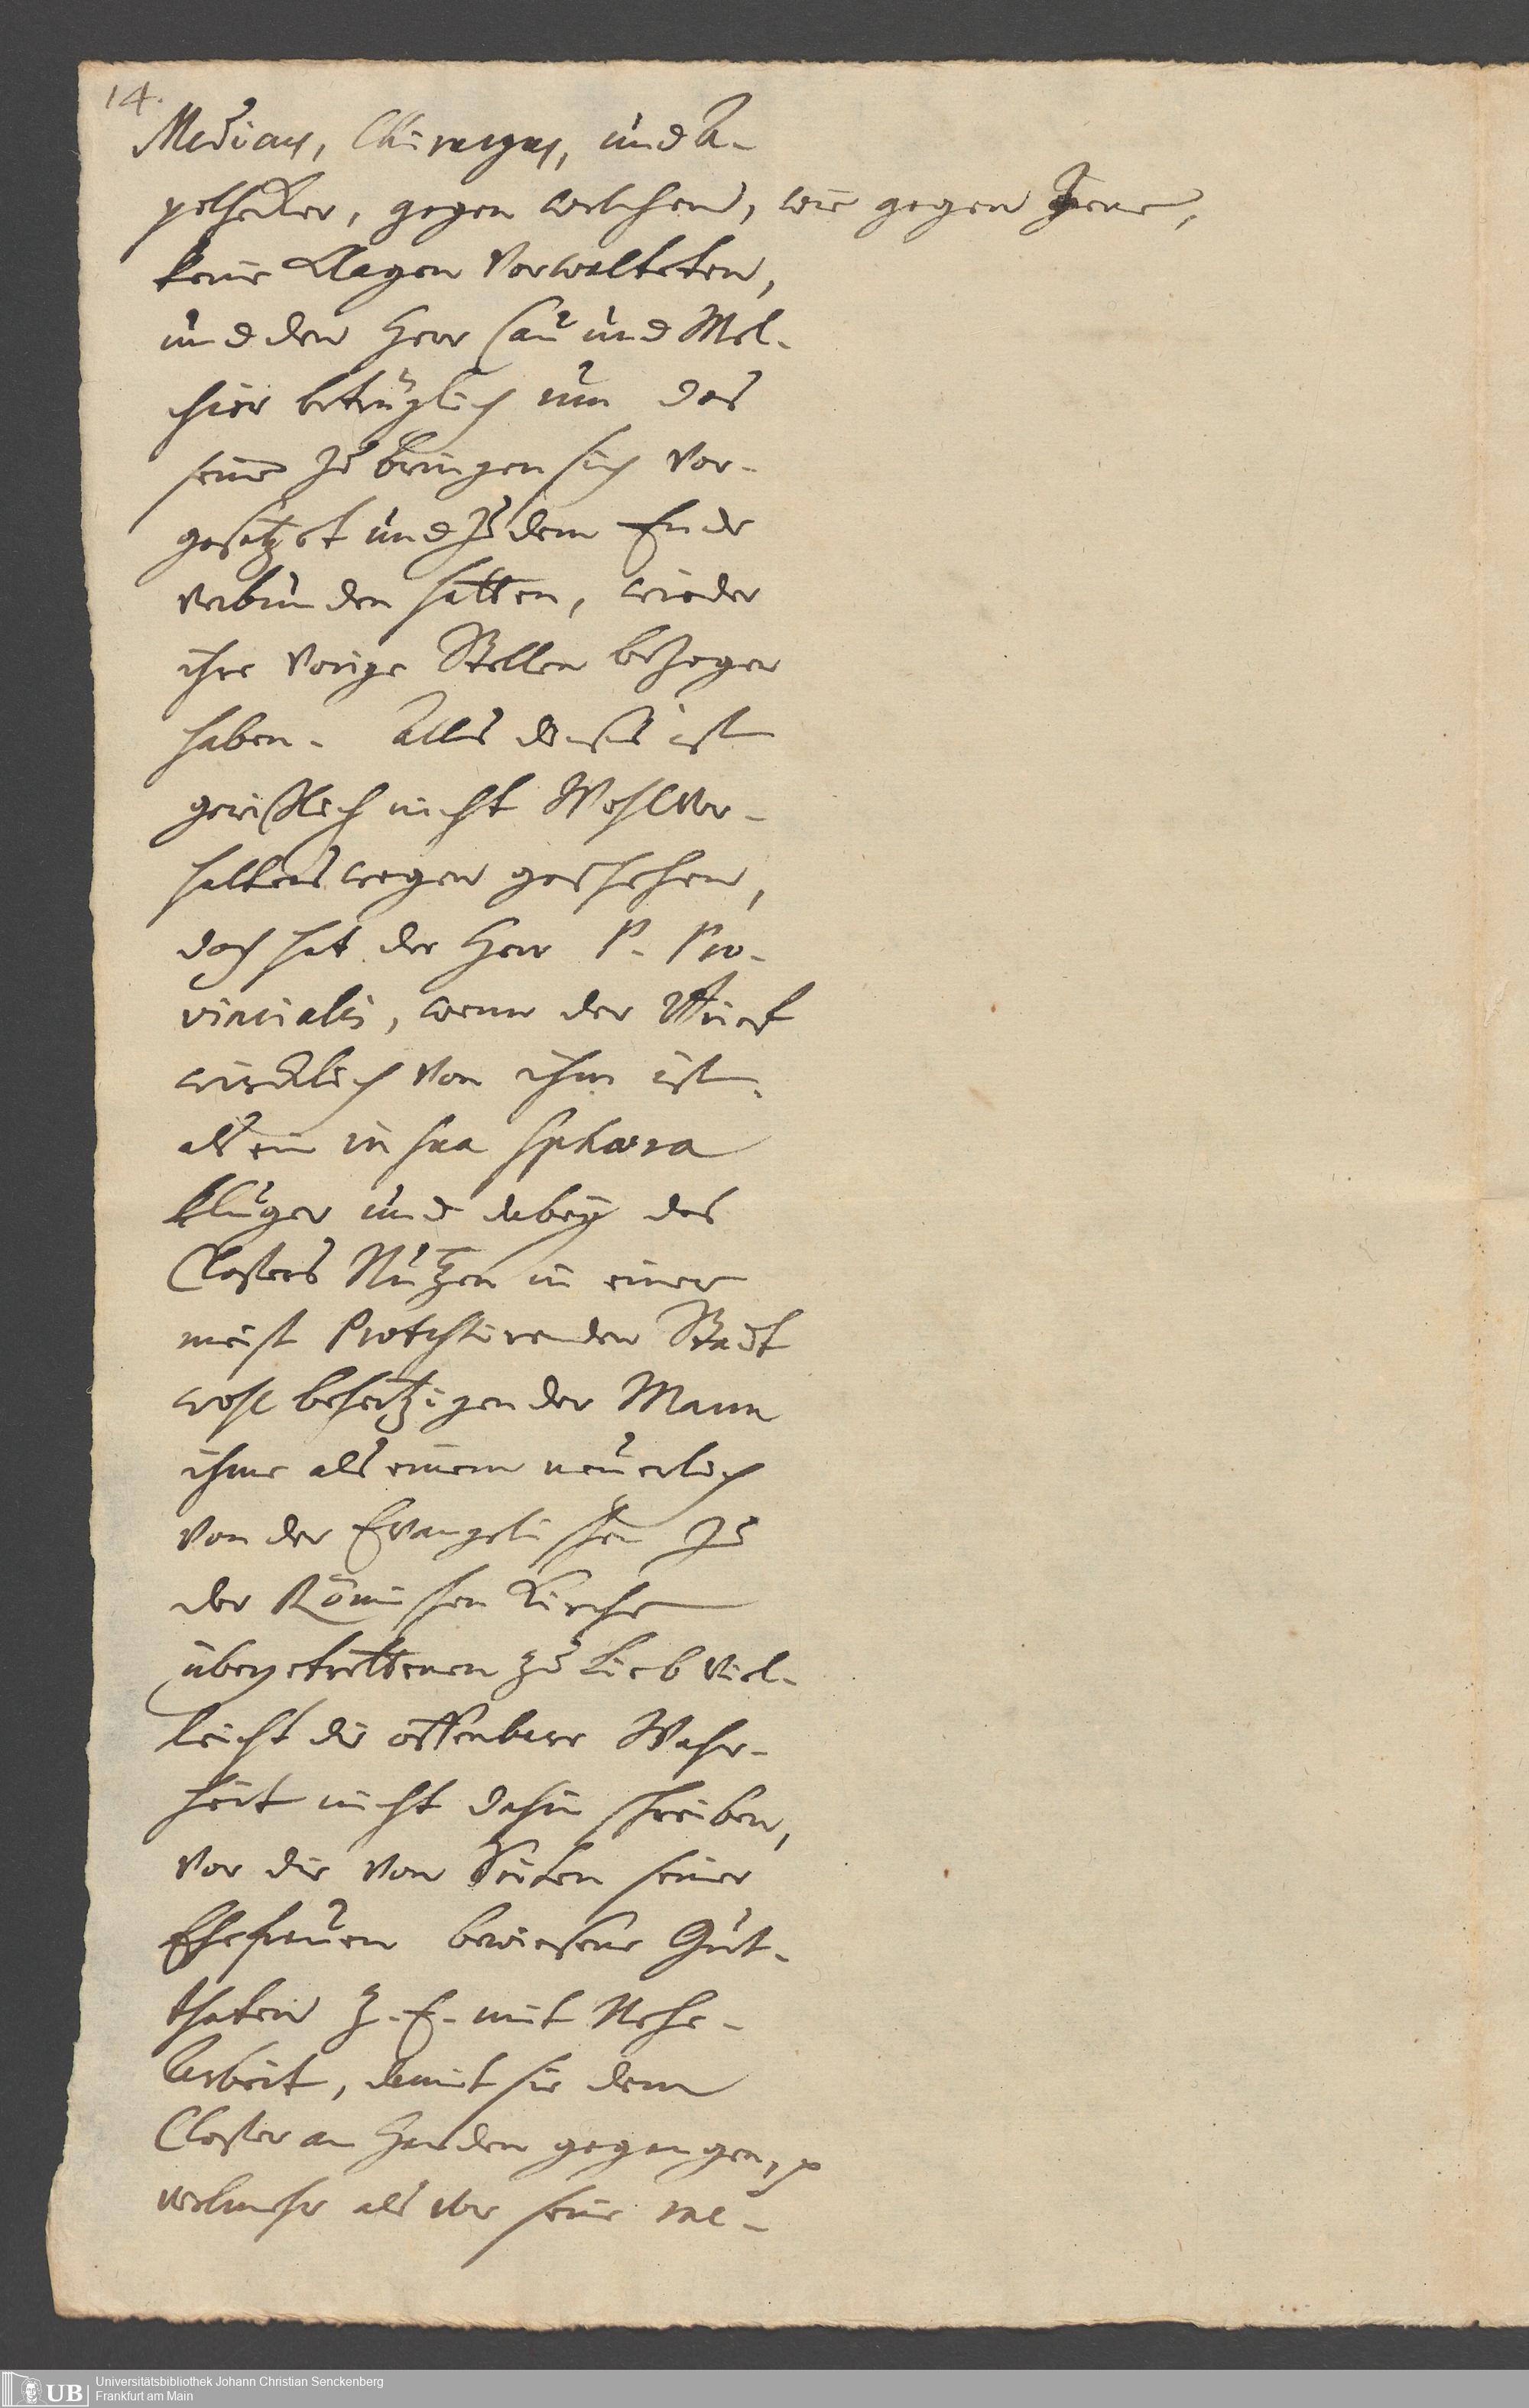 14.
Medicus, Chirurgus, und A-
pothecker, gegen welchen, wie gegen Jene,
keine Klagen vorwalteten,
und den Herr Cau und Mel-
chior betrüglich um das
seine zu bringen sich vor-
gesetzet und zu dem Ende
verbunden hatten, wieder
ihre vorige Stellen bezogen
haben. Alles dieses ist
gewißlich nicht Wohlver-
haltens wegen geschehen,
doch hat der Herr P. Pro-
vincialis, wenn der
wircklich von ihm ist,
als ein in sua sphaera
kluger und dabey des
Closters Nutzen in einer
meist Protestirenden Stadt
wohl behertzigender Mann
ihme als einem neuerlich
von der Evangelischen zu
der Römischen Kirche
übergetrettenen zu Lieb viel-
leicht die offenbare Wahr-
heit nicht dahin schreiben,
vor die von Seiten seiner
Ehefrauen bewiesene Gut-
thaten z. E. mit Nehe-
Arbeit, damit sie dem
Closter an Handen gegangen,
vielmehr als vor seine me-
Universitätsbibliothek Johann Christian Senckenberg
Frankfurt am Main
UB